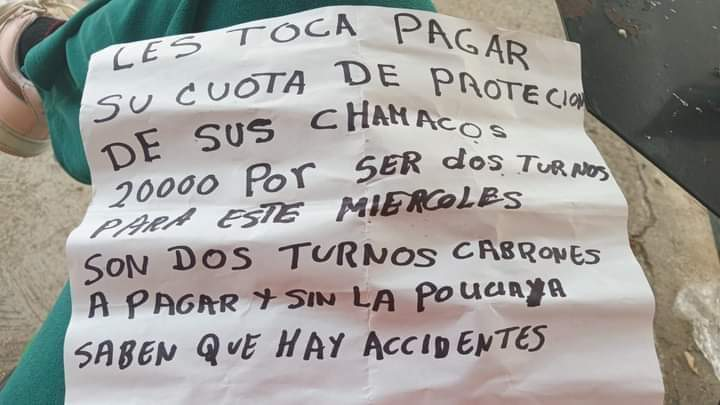 LES TOCA PAGAR
SU CUOTA DE PROTECION
DE SUS CHAMACOS
20000 POR SER dOS TURNOS
PARA ESTE MIERCOLES
SON DOS TURNOS CABRONES
A PAGAR Y SIN LA POLICIA YA
SABEN QUE HAY ACCIDENTES